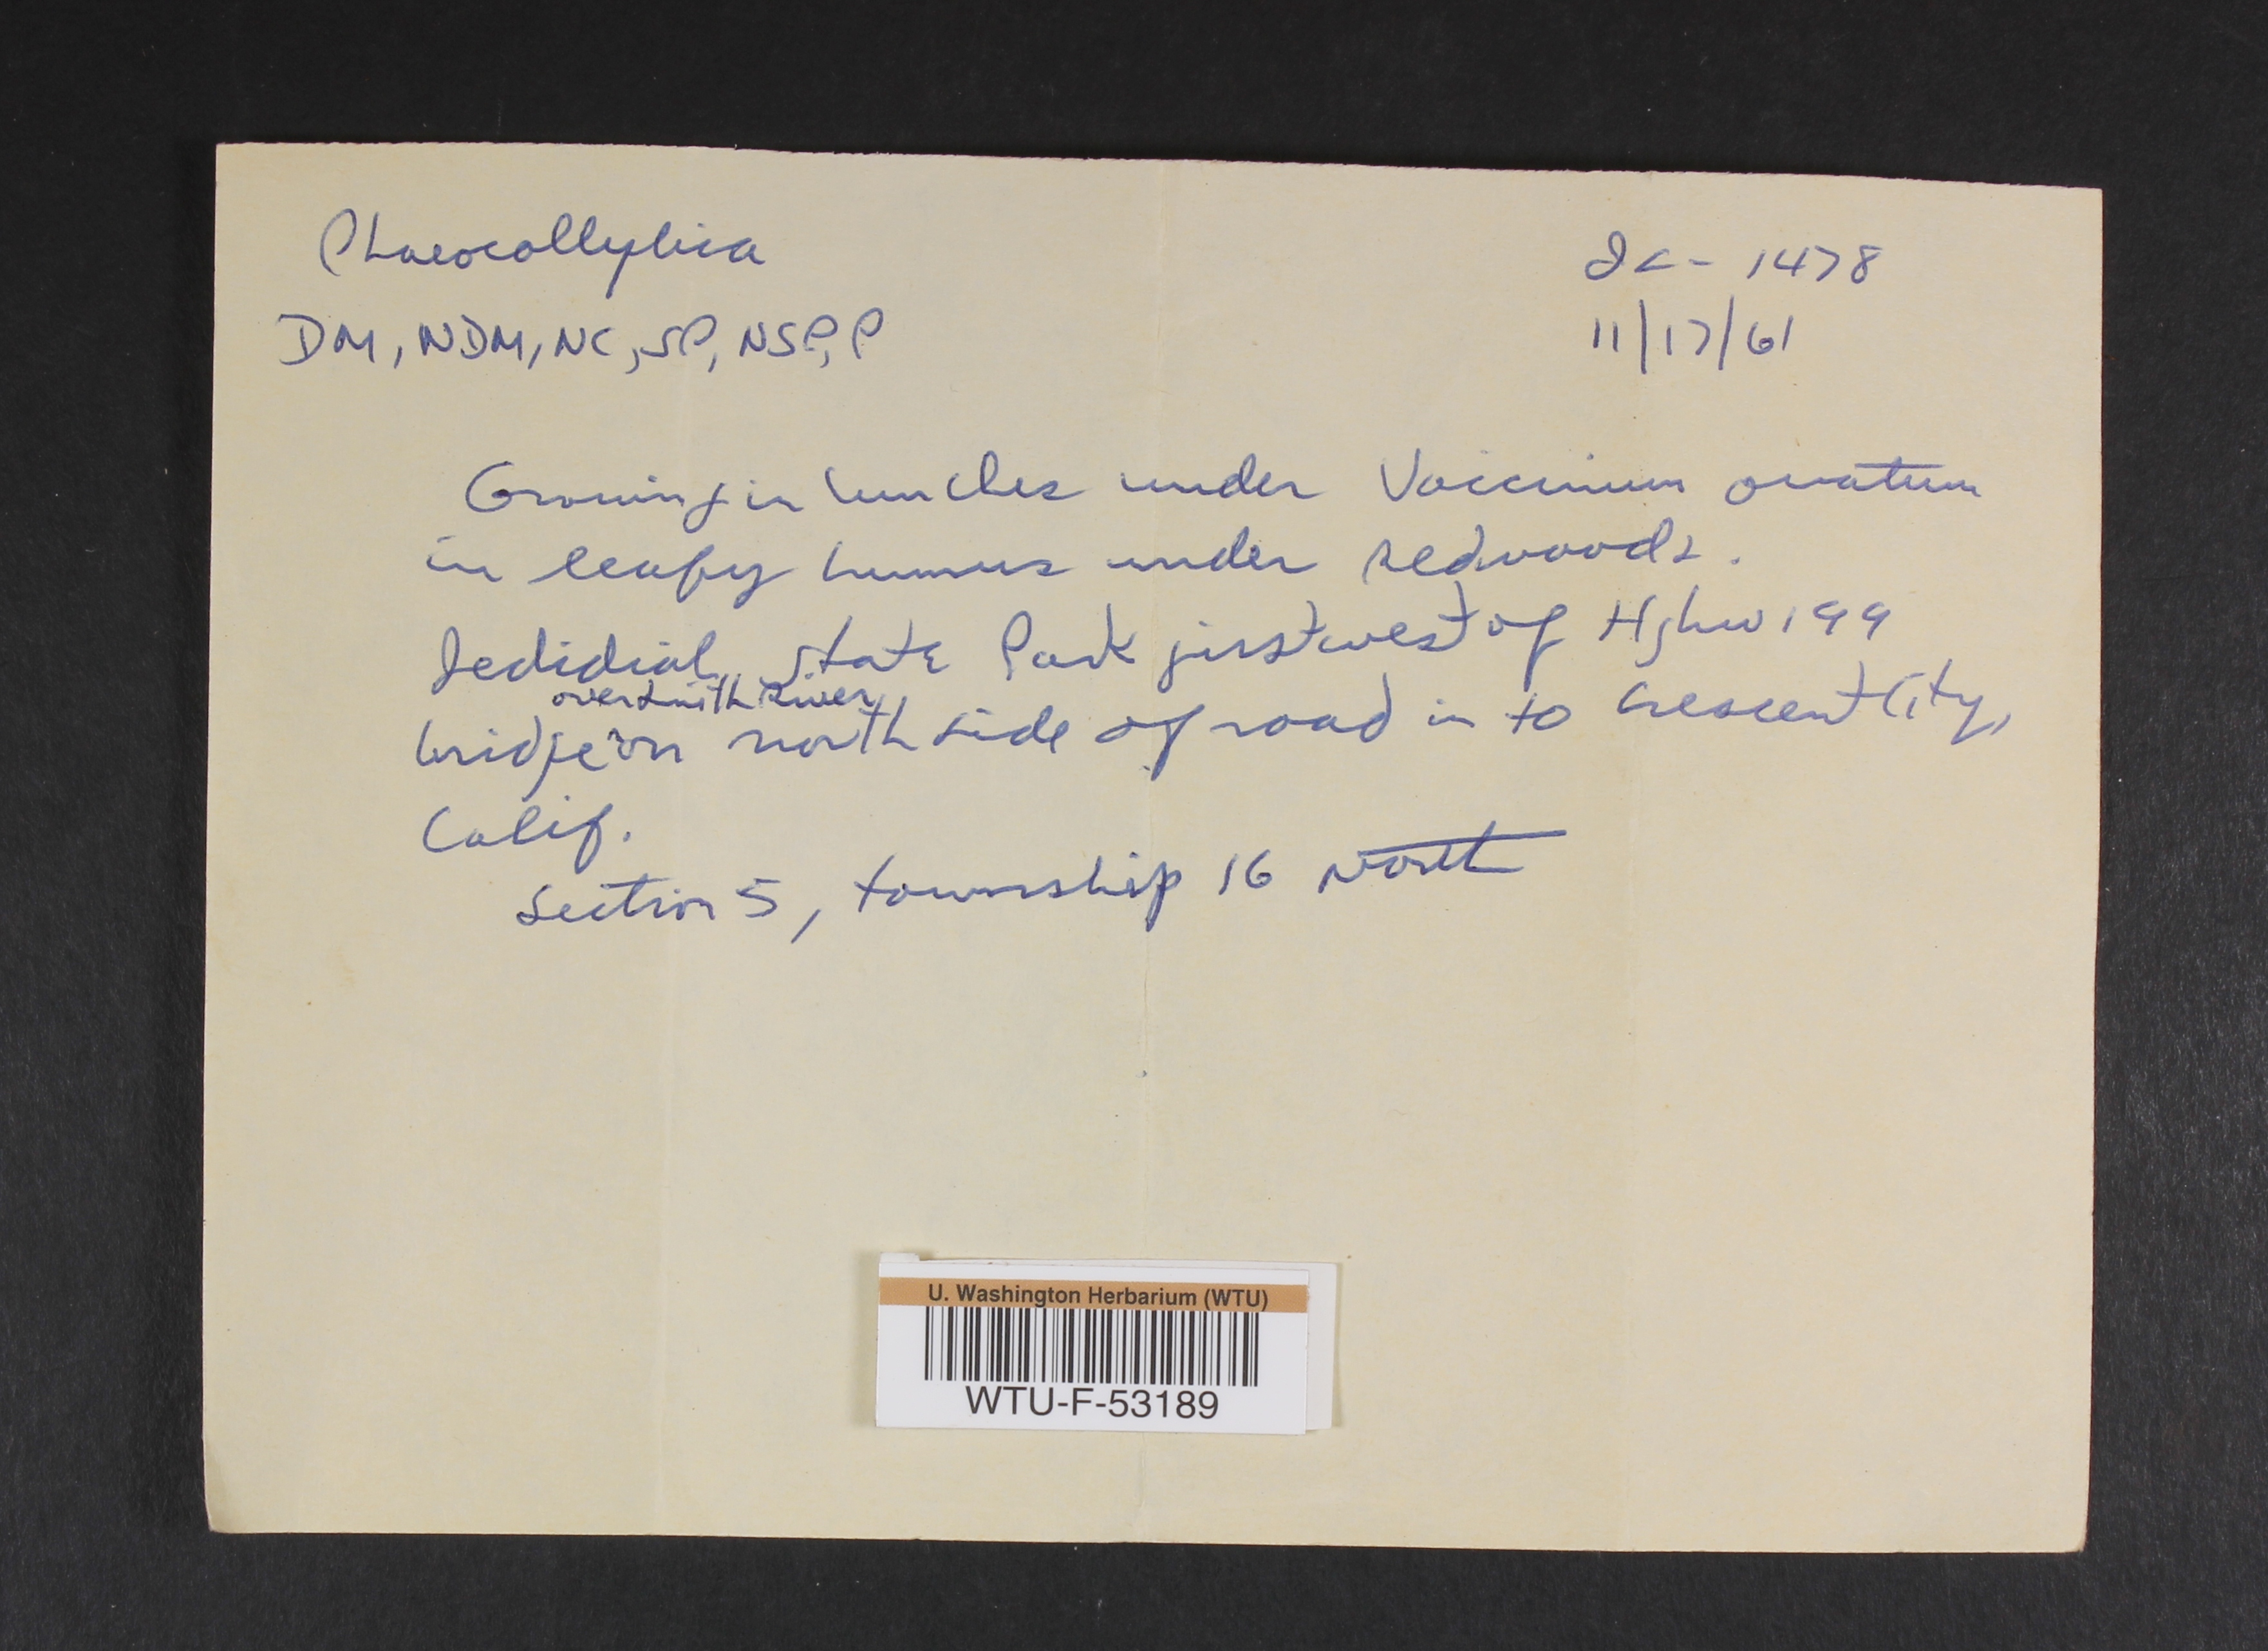 Phaeocollybia
Jc - 1478
DM, NDM, NC, SP, NSP, P
11/17/61
Growing in bunches under Vaccinium ovatum
in leafy humus under redwoods.
Jedidiah State Park just west of Hghw 199
over Smith River
bridge on north side of road in to Crescent City,
Calif.
Section 5, township 16 North
U. Washington Herbarium (WTU)
WTU-F-53189